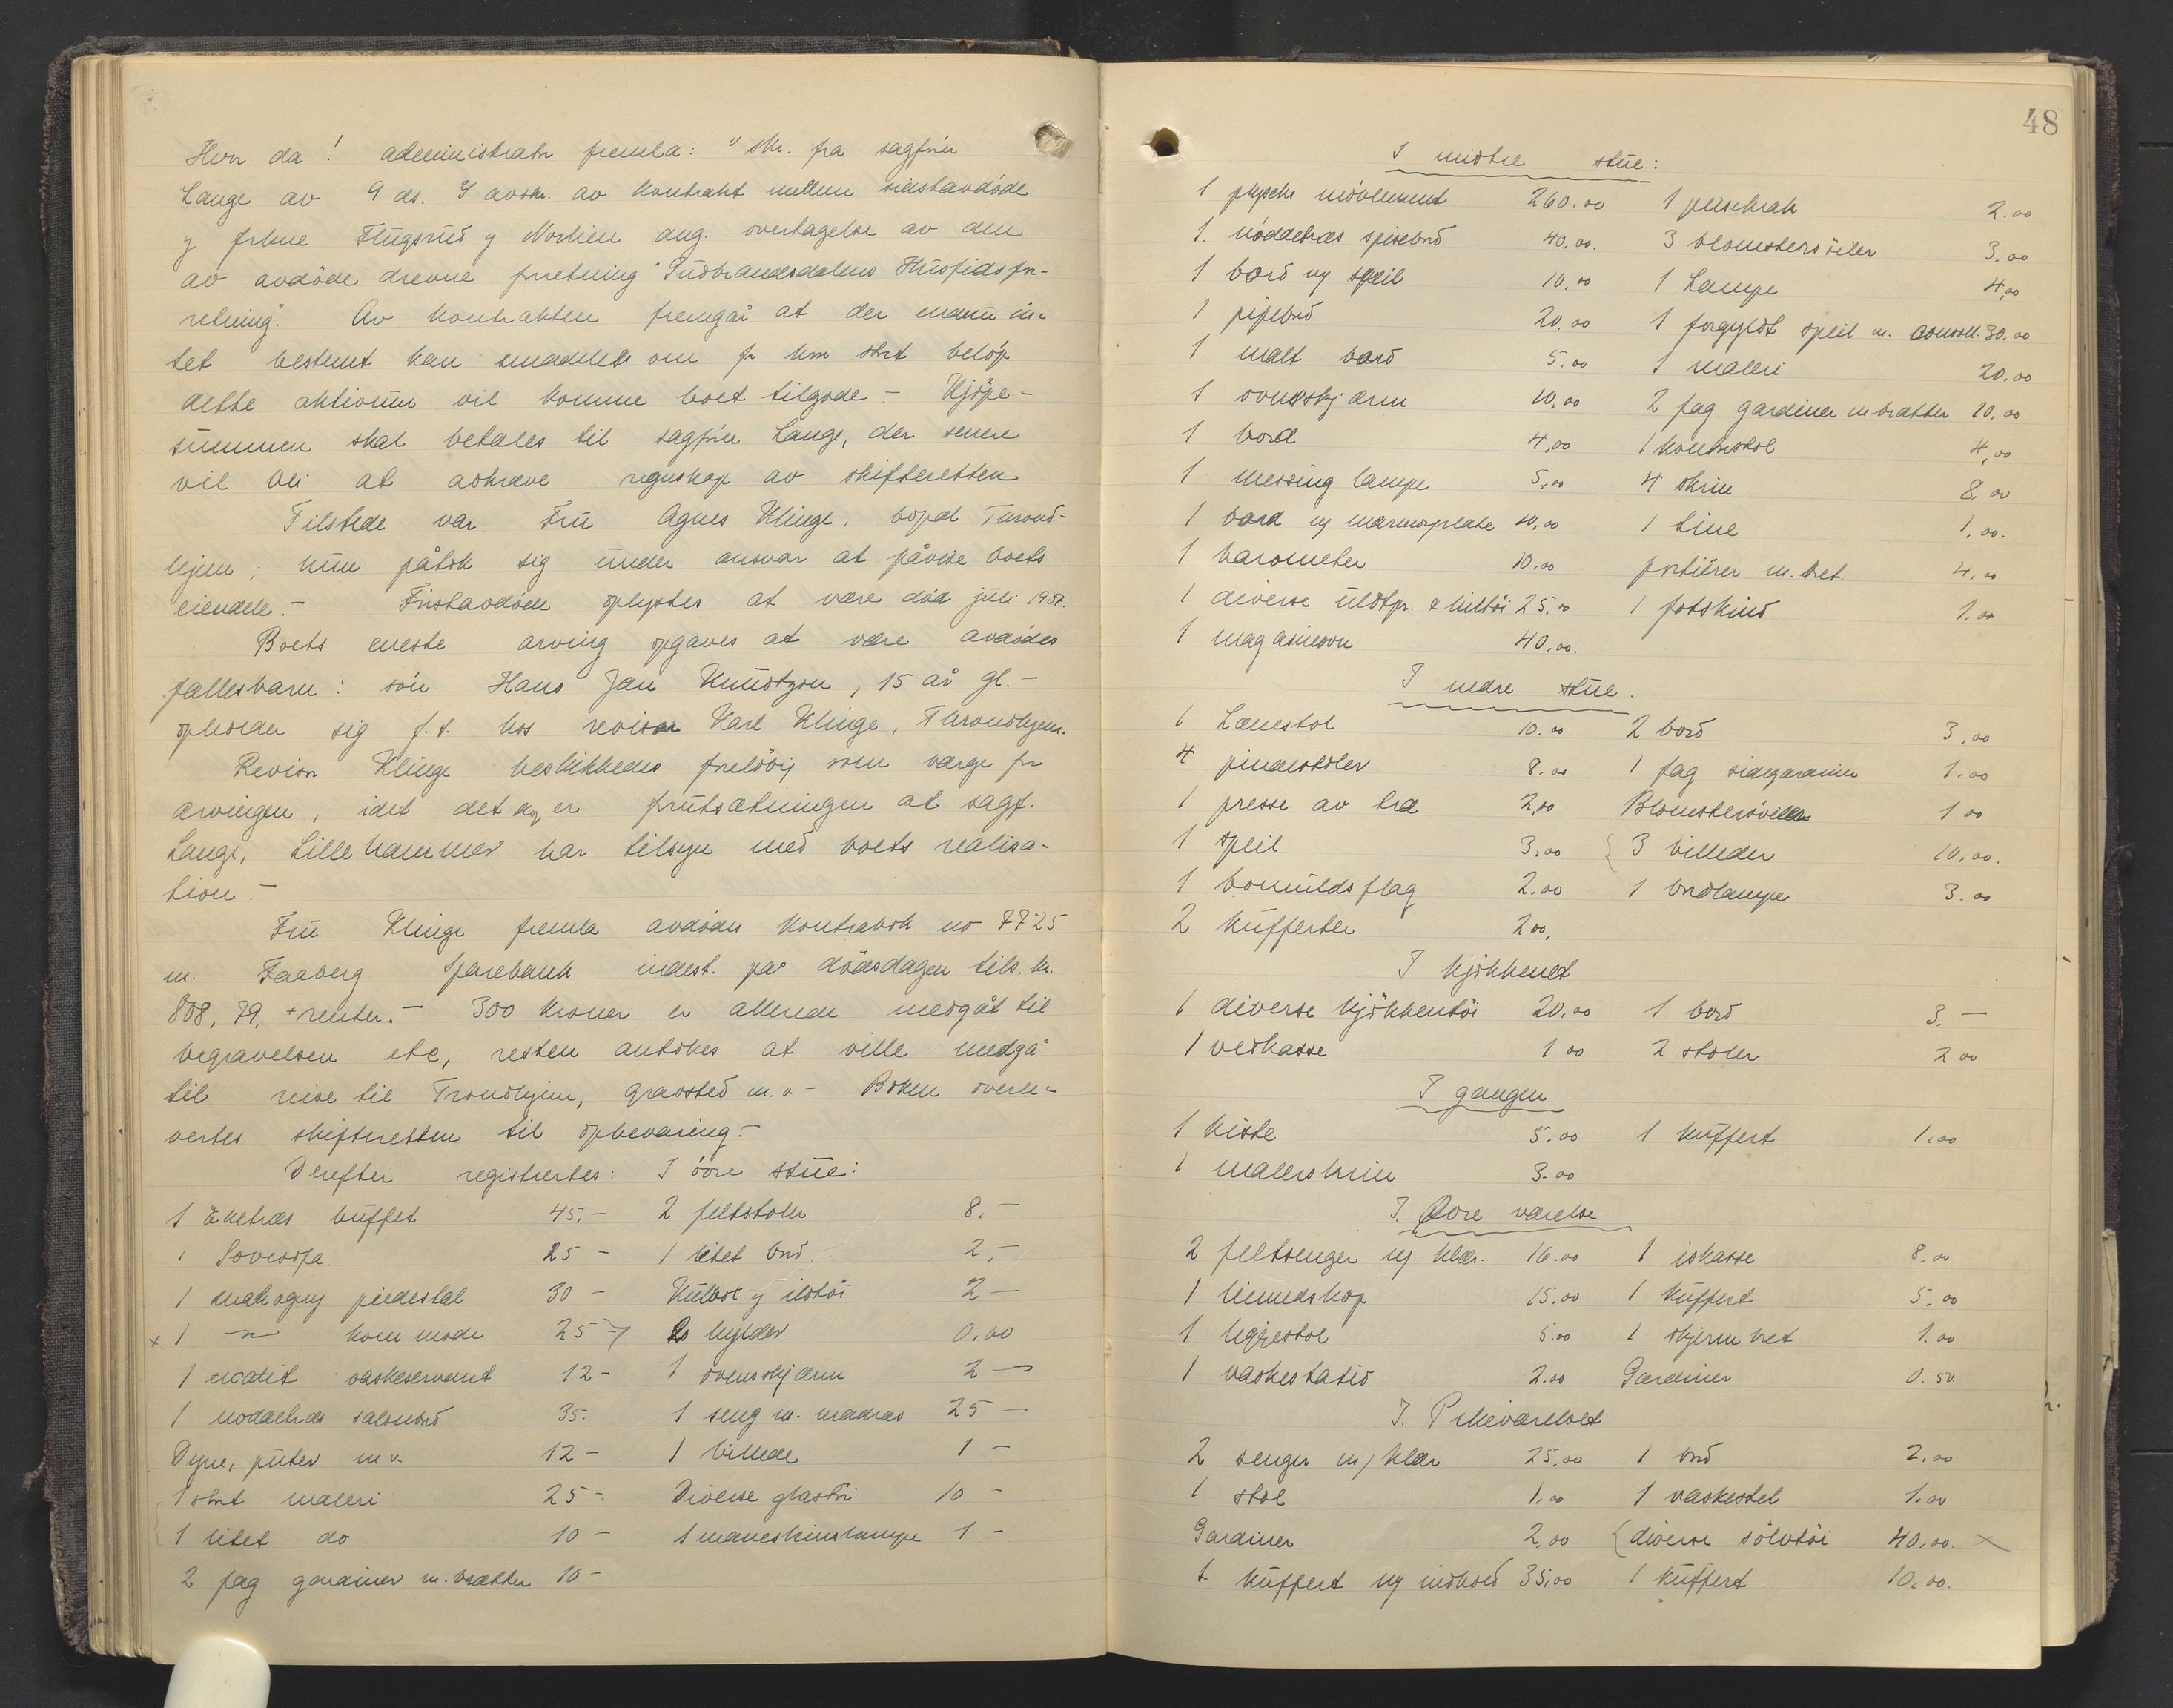 Hvor da! administrator fremla: 1) skr. fra sagfører
Lange av 9 ds. 2) avskr. av kontrakt mellem sidstavdøde
og frkne Flugsrud og Norlien ang. overtagelse av den
av avdøde drevne forretning "Gudbrandsdalens Husflidsfor-
retning". Av kontrakten fremgår at der ennu in-
tet bestemt kan meddeles om for hvor stort beløp
dette aktivum vil komme boet tilgode. - Kjøpe-
summen skal betales til sagfører Lange, der senere
vil bli at avkræve regnskap av skifteretten
Tilstede var Fru Agnes Klinge, bopæl Trond-
hjem; hun påtok sig under ansvar at påvise boets
eiendele. - Førstavdøde oplystes at være død juli 1907.
Boets eneste arving opgaves at være avdødes
fællesbarn: søn Hans Jan Knudtzon, 15 år gl. -
opholder sig f.t. hos revisor Karl Klinge, Throndhjem.
Revisor Klinge beskikkedes foreløbig som værge for
arvingen, idet det og er forutsætningen at sagf.
Lange, Lillehammer har tilsyn med boets realisa-
tion. -
Fru Klinge fremla avdødes kontrabok no 7725
m. Faaberg Sparebank indest. på dødsdagen tils. kr.
808,79, + renter. - 300 kroner er allerede medgåt til
begravelsen etc, resten antokes at ville medgå
til reise til Trondhjem, gravsted m.v. - Boken overle-
vertes skifteretten til opbevaring. -
Derefter registrertes: I øvre stue:
1 Eketræs buffet 45,- 2 feltstoler 8.-
1 Sovesofa 25 - 1 litet bord 2,-
1 mahogny piedestal 30 - Kulboks og ildtøi 2 -
x 1 — kommode 25 - hylder 0,60
1 vaskeservant 12 - 1 ovnsskjærm 2 -
1 nøddetræs salonbord 35. 1 seng m. madras 25 -
Dyne, puter m v. 12 - 1 billede 1 -
1 stort maleri 25 - Diverse glastøi 10 -
1 litet do 10 - 1 maneskinslampe 1 -
2 fag gardiner m. brætter 10 -
48
I midtre stue:
1 plyschs møblement 260.00 1 peisekrak 2.00
1. nøddetræs spisebord 40,00. 3 blomstersøiler 3.00
1 bord og speil 10,00 1 Lampe 4,00
1 pipebord 20,00 1 forgyldt speil m. consoll. 30,00
1 malt bord 5.00 1 maleri 20,00
1 ovnsskjærm 10,00 2 fag gardiner m brætter 10,00
1 bord 4,00 1 kontorstol 4,00
1 messing lampe 5,00 4 skrin 8 00
1 bord og marmorplate 10,00 1 tine 1,00.
1 barometer 10.00 portierer m. bret. 4,00
1 diverse uldtpr. & hultøi 25.00 1 fotskind 1.00
1 magasinovn 40,00.
I nedre stue.
1 Lænestol 10.00 2 bord 3,00
4 pindestoler 8.00 1 fag sidegardiner 1.00
1 presse av træ 2,00 Blomstersøiler 1 00
1 speil 3,00 3 billeder 10,00.
1 bomuldsflag 2.00 1 bordlampe 3.00
2 kufferter 2 00,
I kjøkkenet
1 diverse kjøkkentøi 20,00 1 bord 3. -
1 vedkasse 1 00 2 stoler 2 00
I gangen
1 kiste 5.00 1 kuffert 1.00
1 malerskrin 3.00
I. Øvre værelse
2 feltsenger og klær. 16.00 1 iskasse 8.00
1 linnedskap 15.00 1 kuffert 5.00
1 liggestol 5.00 1 skjermbret 1.00
1 vaskestativ 2.00 Gardiner 0.50.
I. Pikeværelset
2 senger m/ klær 25,00 1 bord 2.00
1 stol 1.00 1 vaskestel 1.00
Gardiner 2,00 diverse sølvtøi 40,00. x
1 kuffert og indhold 35,00 1 kuffert 10,00.